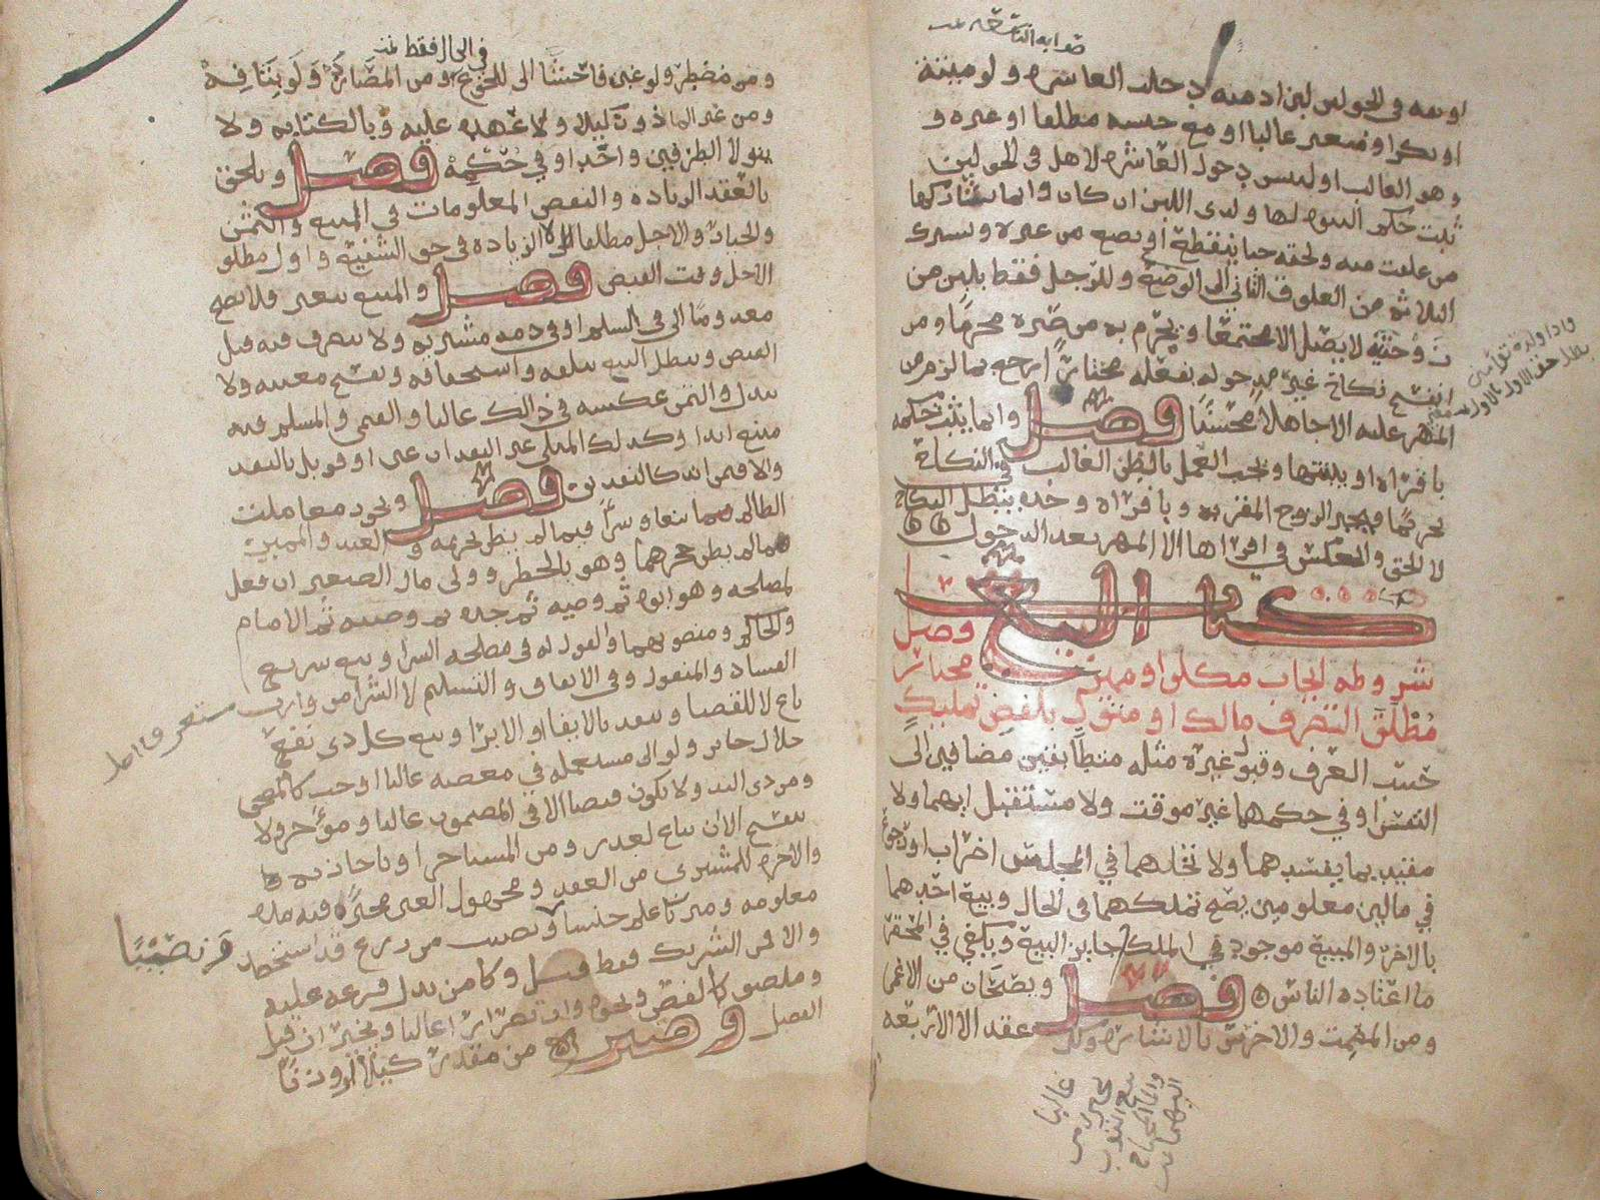 او بعه وفي الحولين لبن ادميه دخلت العاشره ولو ميتة
او بكرا او متغير غالبا او مع جنسه مطلقا او غيره و
وهو الغالب او ليس دخول العاشره لا هل في الحولين
ثبت حكم البنوه لها ولذي اللبن ان كان وانما يشاركها
من علقت منه ولحقه حتا ينقطع او تضع من غيره ويشترك
الثلاثه من العلوق الثاني الى الوضع وللرجل فقط بلبن من
زوجتيه لا يصل الا مجتمعا ويحرم به من صيره محرما ومن
انفسخ نكاح غير مدخوله بفعله مختارا رجع بما لزم من
المهر عليه الا جاهلا محسنا فصل وانما يثبت حكمه
باقراره او ببينتها ويجب العمل بالظن الغالب في النكاح
تحريما ويجبر الزوج المقر به وباقراره وحده يبطل النكاح
لا الحق والعكس في اقرارها الا المهر بعد الدخول
كتاب البيع فصل
شروطه ايجاب مكلف او مميز مختار
مطلق التصرف مالك او متول بلفظ تمليك
حسب العرف وقبول غيره مثله متطابقين مضافين الى
النفس او في حكمهما غير موقت ولا مستقبل ايهما ولا
مقيد بما يفسدهما ولا تخللهما في المجلس اضراب او رجوع
في مالين معلومين يصح تملكهما في الحال وبيع احدهما
بالاخر والمبيع موجود في الملك جايز البيع ويكفي في المحقر
ما اعتاده الناس فصل ويصحان من الاعمى
ومن المصمت والاخرس بالاشاره وكل عقد الا الاربعه
في الحال فقط
ومن مضطر ولو غبن فاحشا الا للجوع ومن المصادر ولو بتافه
ومن غير الماذون وكيلا ولا عهده عليه وبالكتابه ولا
يتولا الطرفين واحد او في حكمه فصل ويلحق
بالعقد الزياده والنقص المعلومات في المبيع والثمن
والخيار والاجل مطلقا لا الزياده في حق الشفيع واول مطلق
الاجل وقت القبض فصل والمبيع يتعين فلا يصح
معدوما الا في السلم او في ذمه مشتريه ولا يتصرف فيه قبل
القبض ويبطل البيع بتلفه واستحقاقه ويفسخ معيبه ولا
يبدل والثمن عكسه في ذالك غالبا والقيمي والمسلم فيه
مبيع ابدا وكذلك المثلي غير النقد ان عين او قوبل بالنقد
والا فثمن ابدا كالنقدين فصل ويجوز معاملت
الظالم بيعا وشراء فيما لم يظن تحريمه والعبد والمميز
فيما لم يظن حجرهما وهو بالخطر وولي مال الصغير ان فعل
لمصلحه وهو ابوه ثم وصيه ثم جده ثم وصيه ثم الامام
والحاكم ومنصوبهما والقول له في مصلحه الشرا وبيع سريع
الفساد والمنقول وفي الانفاق والتسليم لا الشرا من وارث
باع لا للقضا وينفذ بالايفا او الابرا وبيع كل ذي نفع
حلال جايز ولو الى مستعمله في معصيه غالبا او واجب كالمصحف
ومن ذي اليد ولا تكون قبضا الا في المضمون غالبا ومؤجر ولا
ينفسخ الا ان يباع لعذر ومن المستاجر او باجازته
والاجره للمشتري من العقد ومجهول العين مخيرا فيه مده
معلومه وميراث علم جنسا ونصيب من زرع قد استحصد
والا فمن الشريك فقط قيل وكامن يدل فرعه عليه
وملصق كالفص ونحوه وان تضررا غالبا ويخير ان قبل
الفصل وصبره من مقدر كيلا او وزنا